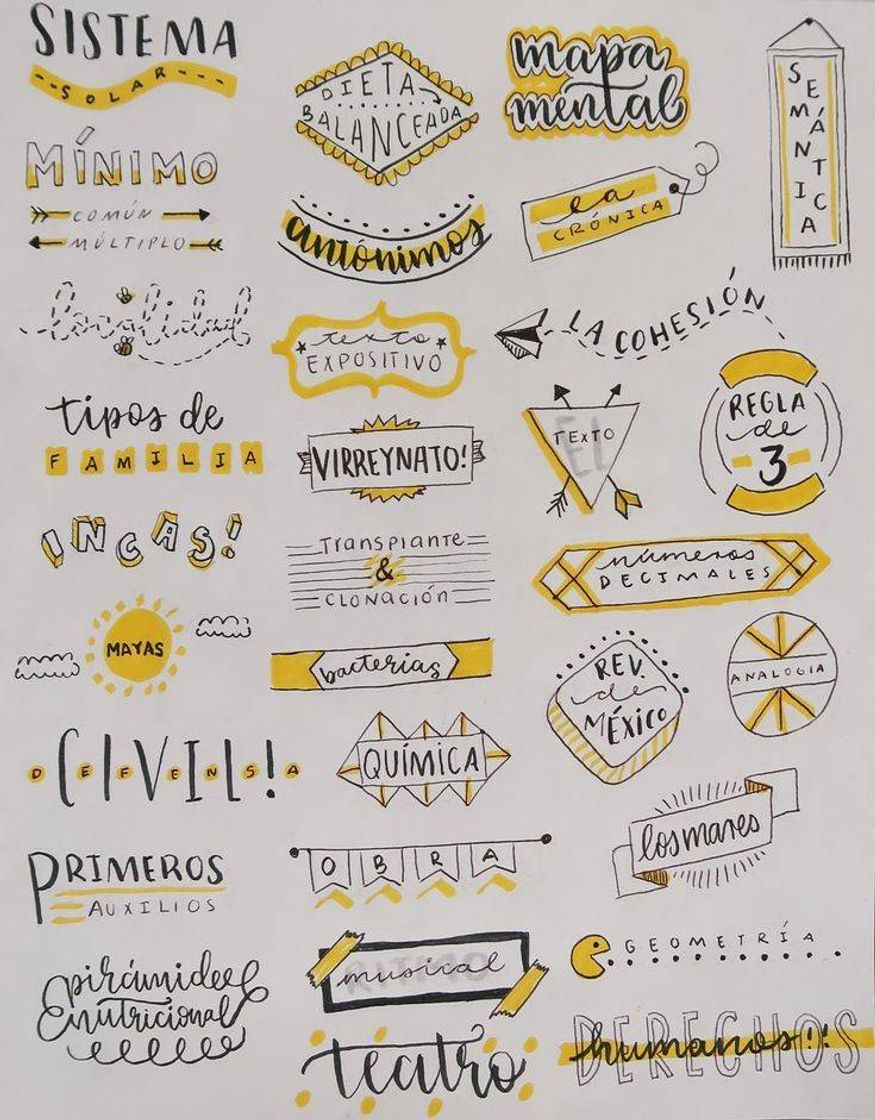 SISTEMA
SOLAR
MÍNIMO
COMÚN
MÚLTIPLO
localidad
tipos de
FAMILIA
INCAS!
MAYAS
DEFENSA
CIVIL!
PRIMEROS
AUXILIOS
pirámide
nutricional
DIETA
BALANCEADA
antónimos
texto
EXPOSITIVO
VIRREYNATO!
Transplante
&
CLONACIÓN
bacterias
QUÍMICA
OBRA
RITMO
musical
teatro
mapa
mental
la
CRÓNICA
SEMÁNTICA
LA COHESIÓN
EL
TEXTO
REGLA
de
3
números
DECIMALES
REV.
de
MÉXICO
ANALOGIA
los mares
GEOMETRÍA
DERECHOS
humanos!!